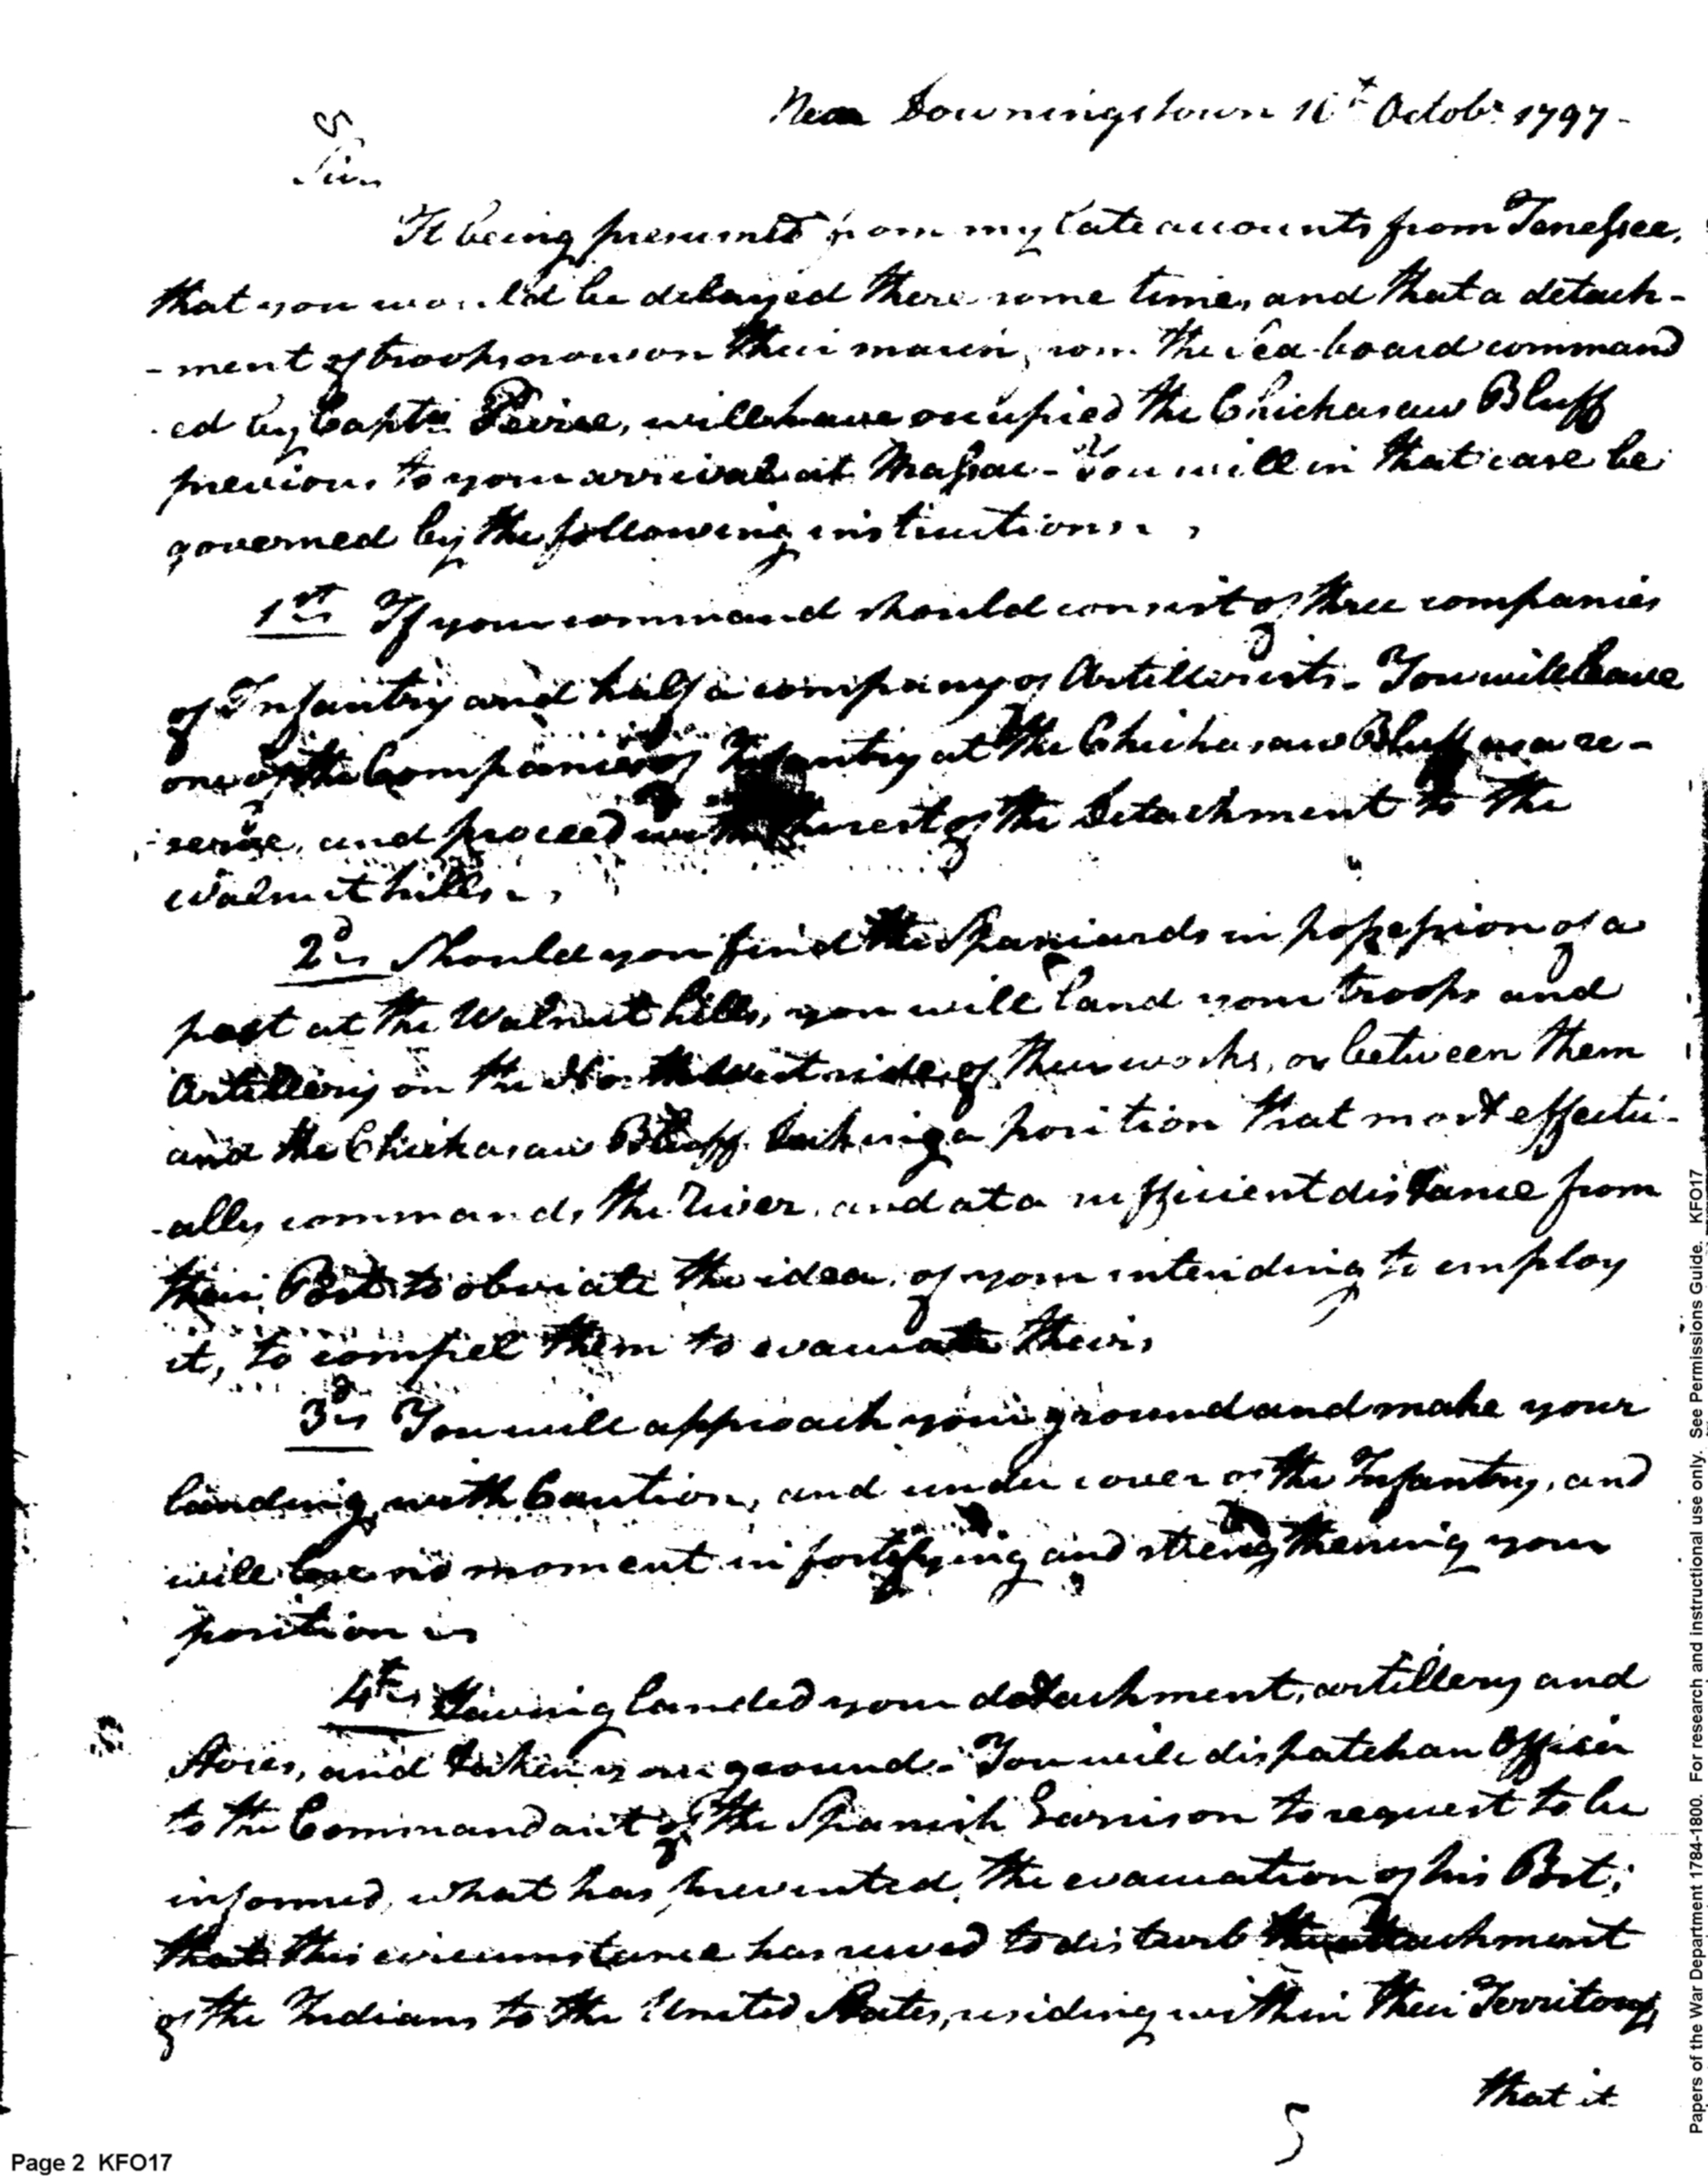 Near Downingstown 16th Octobr 1797-
5
Sir.
It being presumed from my late accounts from Tenessee,
that you would be delayed there some time, and that a detach-
-ment of troops now on their march, from the Sea-board command
ed by Captn Peirce, will have occupied the Chickasaw Bluff
previous to your arrival at Massac - You will in that case be
governed by the following instructions.
1st If your command should consist of three companies
of Infantry and half a company of Artillerists - You will leave
one of the Companies of Infantry at the Chickasaw Bluff as a re-
-serve, and proceed with the rest of the Detachment to the
Walnut hills.
2d Should you find the Spaniards in possession of a
post at the Walnut hills, you will land your troops and
Artillery on the North West side of their works, or between them
and the Chickasaw Bluff taking a position that most effectu-
-ally commands the River, and at a sufficient distance from
their Post to obviate the idea, of your intending to employ
it, to compel them to evacuate theirs
3d You will approach your ground and make your
landing with Caution, and under cover of the Infantry, and
will lose no moment in fortifying and strengthening your
position
4th Having landed your detachment, artillery and
Stores, and taken your ground - You will dispatch an Officer
to the Commandant of the Spanish Garrison to request to be
informed, what has prevented, the evacuation of his Post;
that this circumstance has served to disturb the attachment
of the Indians to the United States, residing within their Territory,
that it
5
Page 2 KFO17
Papers of the War Department 1784-1800. For research and instructional use only. See Permissions Guide. KFO17